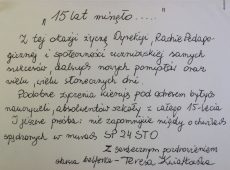 „15 lat minęło....."
Z tej okazji życzę Dyrekcji, Radzie Pedago-
gicznej i społeczności uczniowskiej samych
sukcesów, dalszych nowych pomysłów oraz
wielu, wielu słonecznych dni.
Podobne życzenia kieruję pod adresem byłych
nauczycieli, absolwentów szkoły z całego 15-lecia
I jeszcze prośba: nie zapomnijcie nigdy o chwilach
spędzonych w murach SP 24 STO
Z serdecznym pozdrowieniem
stara belferka - Teresa